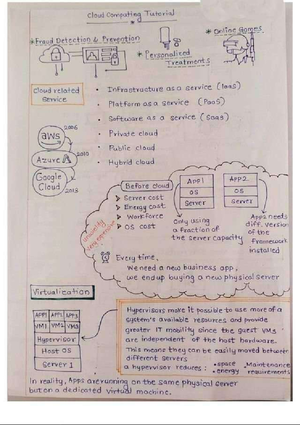 Cloud Computing Tutorial
* Fraud Detection & Prevention
* Personalized
Treatments
* Online Games
Cloud related
Service
• Infrastructure as a service (IaaS)
• Platform as a service (PaaS)
• Software as a service (SaaS)
• Private cloud
• Public cloud
• Hybrid cloud
aws
2006
Azure
2010
Google
Cloud
2013
Before cloud
➤ Server cost
➤ Energy cost
➤ Workforce
➤ OS cost
App1
OS
Server
App2
OS
Server
Only using
a fraction of
the server capacity
Apps needs
diff. Version
of the
Framework
installed
Every time,
We need a new business app,
we end up buying a new physical server
Virtualization
App1 App2 App3
VM1 VM2 VM3
Hypervisor
Host OS
Server 1
Hypervisors make it possible to use more of a
system's available resources and provide
greater IT mobility since the guest VMs
are independent of the host hardware.
This means they can be easily moved between
different servers
a hypervisor reduces: • space • Maintenance
• energy requirements
In reality, Apps are running on the same physical server
but on a dedicated virtual machine.